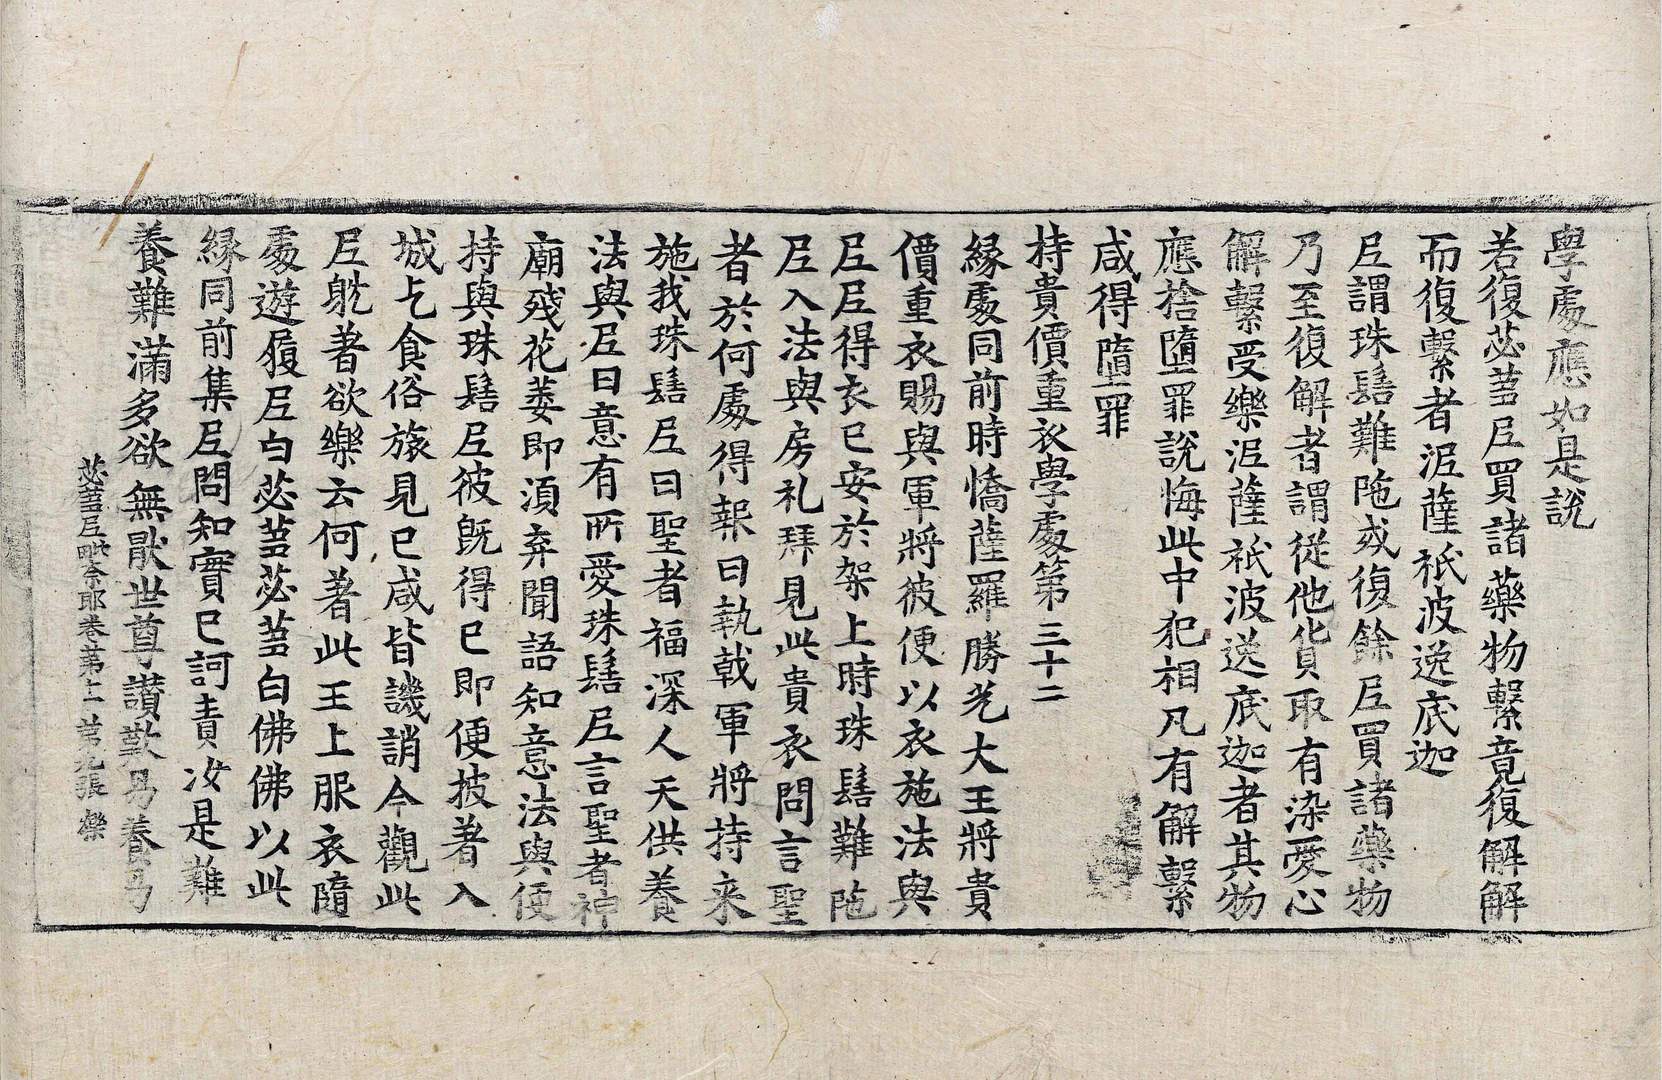 學處應如是說
若復苾蒭尼買諸藥物繫竟復解解
而復繫者泥薩祇波逸底迦
尼謂珠髻難陁或復餘尼買諸藥物
乃至復解者謂從他貨取有染愛心
解繫受樂泥薩祇波逸底迦者其物
應捨墮罪說悔此中犯相凡有解繫
咸得墮罪
持貴價重衣學處第三十二
緣處同前時憍薩羅勝光大王將貴
價重衣賜與軍將彼便以衣施法與
尼尼得衣已安於架上時珠髻難陁
尼入法與房礼拜見此貴衣問言聖
者於何處得報曰執戟軍將持来
施我珠髻尼曰聖者福深人天供養
法與尼曰意有所愛珠髻尼言聖者神
廟殘花萎即須弃聞語知意法與便
持與珠髻尼彼旣得已即便披著入
城乞食俗旅見已咸皆譏誚今觀此
尼躭著欲樂云何著此王上服衣隨
處遊履尼白苾蒭苾蒭白佛佛以此
緣同前集尼問知實已訶責汝是難
養難滿多欲無猒世尊讃歎易養易
苾蒭尼毗奈耶卷苐十一 苐九張 欒